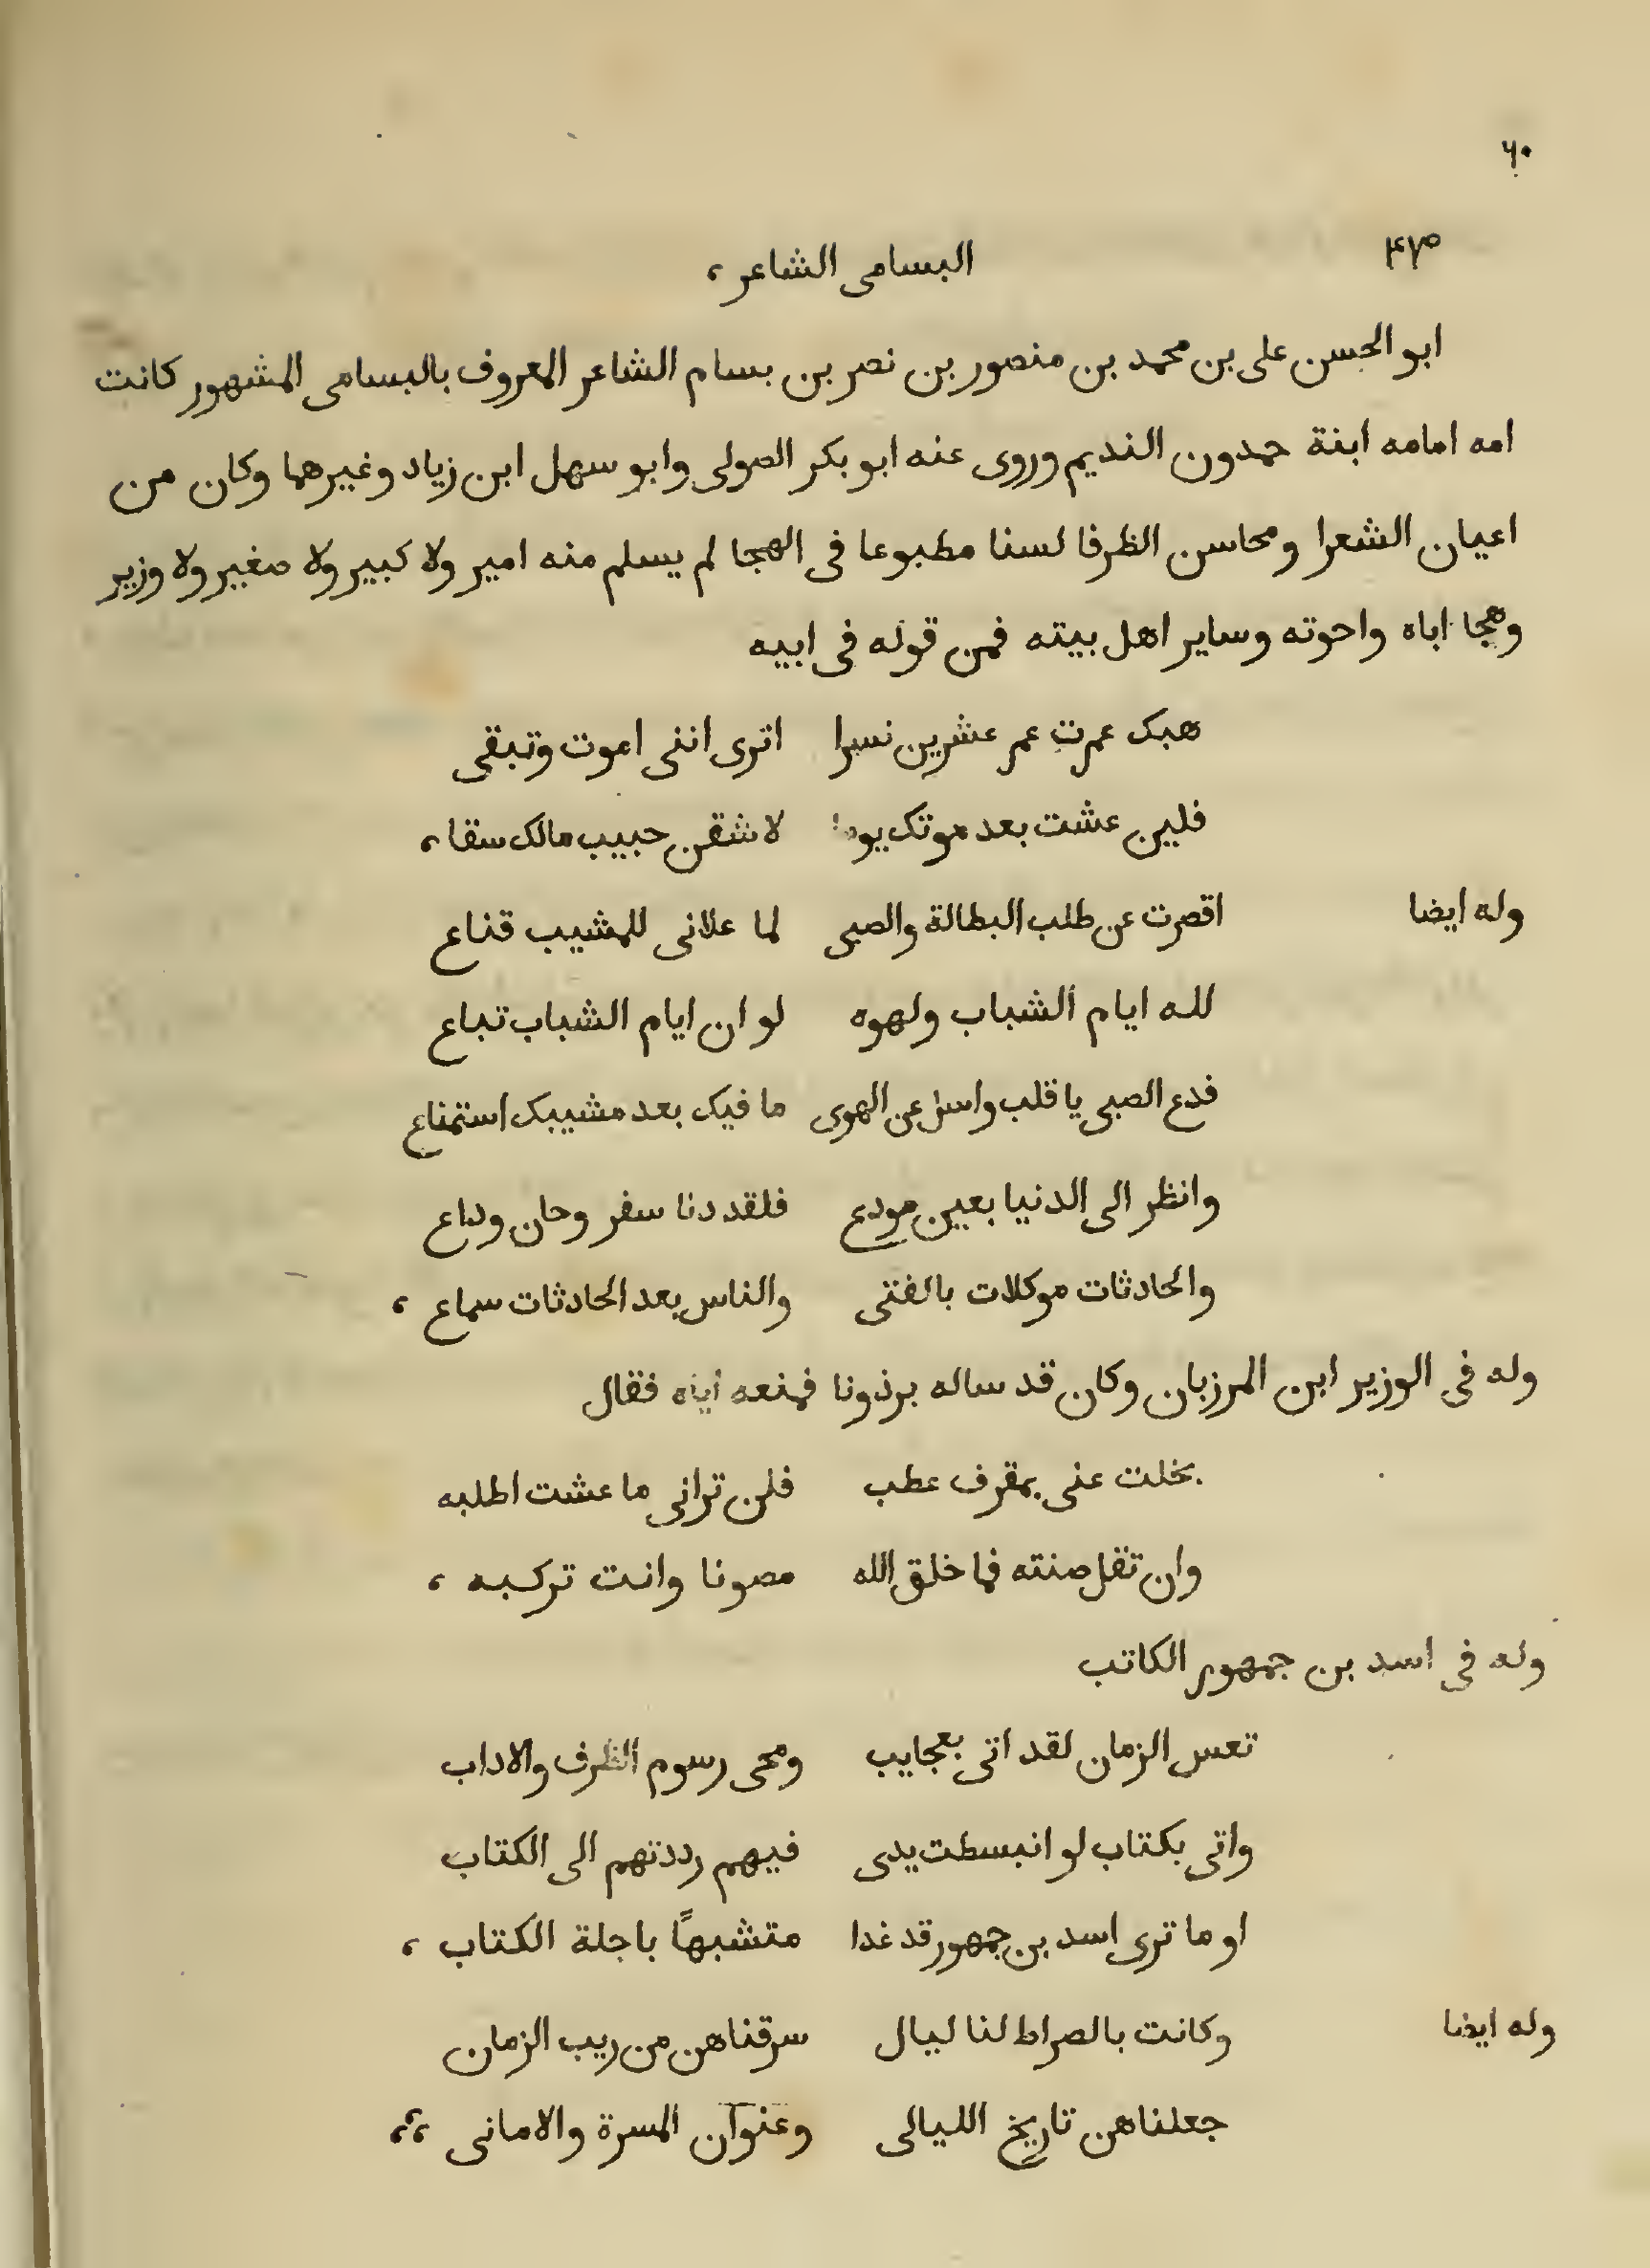 ٦٠
٤٧٥
البسامى الشاعر ،
ابو الحسن على بن محمد بن منصور بن نصر بن بسام الشاعر المعروف بالبسامى المشهور كانت
امه امامه ابنة حمدون النديم وروى عنه ابو بكر الصولى وابو سهل ابن زياد وغيرهما وكان من
اعيان الشعرا ومحاسن الظرفا لسنا مطبوعا فى الهجا لم يسلم منه امير ولا كبير ولا صغير ولا وزير
وهجا اباه واحوته وساير اهل بيته فمن قوله فى ابيه
هبك عمرت عمر عشرين نسرا اترى اننى اموت وتبقى
فلين عشت بعد موتك يوما لاشقن حبيب مالك سقا ،
وله ايضا اقصرت عن طلب البطالة والصبى لما علانى للمشيب قناع
لله ايام الشباب ولهوه لو ان ايام الشباب تباع
فدع الصبى يا قلب واسل عن الهوى ما فيك بعد مشيبك استمتاع
وانظر الى الدنيا بعين مودع فلقد دنا سفر وحان وداع
والحادثات موكلات بالفتى والناس بعد الحادثات سماع ،
وله فى الوزير ابن المرزبان وكان قد ساله برذونا فمنعه اياه فقال
بخلت عنى بمقرف عطب فلن ترانى ما عشت اطلبه
وان تقل صنته فما خلق الله مصونا وانت تركبه ،
وله فى اسد بن جمهور الكاتب
تعس الزمان لقد اتى بعجايب ومحى رسوم الظرف والاداب
واتى بكتاب لو انبسطت يدى فيهم رددتهم الى الكتاب
او ما ترى اسد بن جمهور قد غدا متشبهًا باجلة الكتاب ،
وله ايضا وكانت بالصراط لنا ليال سرقناهن من ريب الزمان
جعلناهن تاريخ الليالى وعنوان المسرة والامانى ،،،